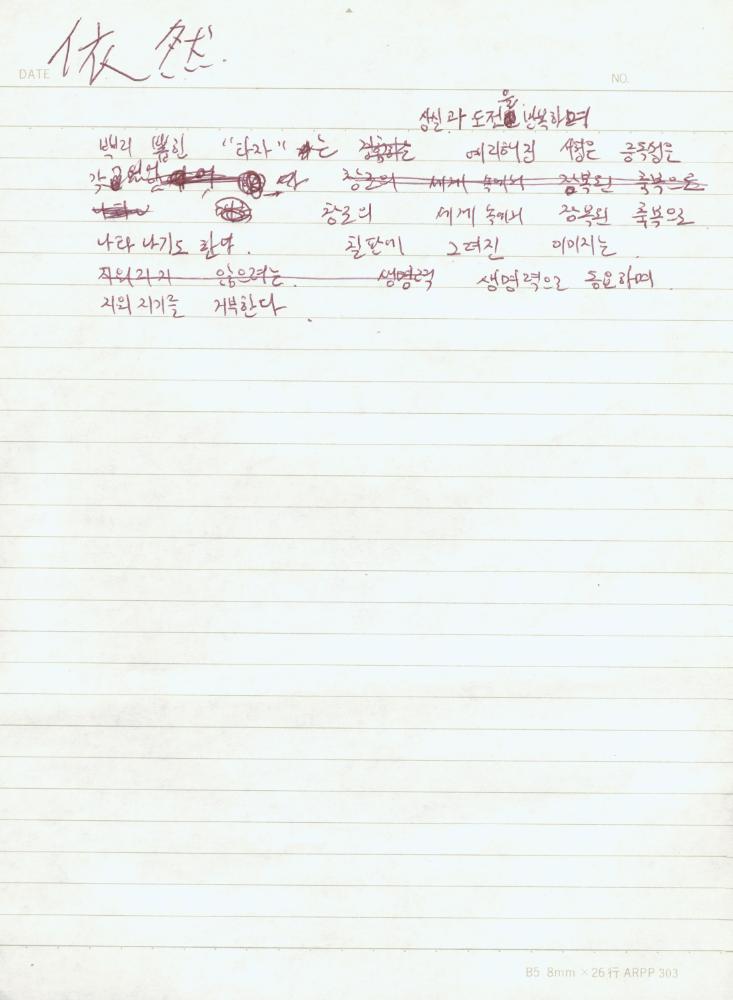 依然.
DATE
NO.
상실과 도전을 반복하며
뿌리 뽑힌 "타자"는 예리해진 시험은 중독성은
각
창조의 세계 속에서 잠복된 축복으로
창조의 세계 속에서 잠복된 축복으로
나타나기도 한다. 칠판에 그려진 이미지는
지워지지 않으려는 생명력 생명력으로 동요하며.
지워지기를 거부한다.
B5 8mm × 26行 ARPP 303